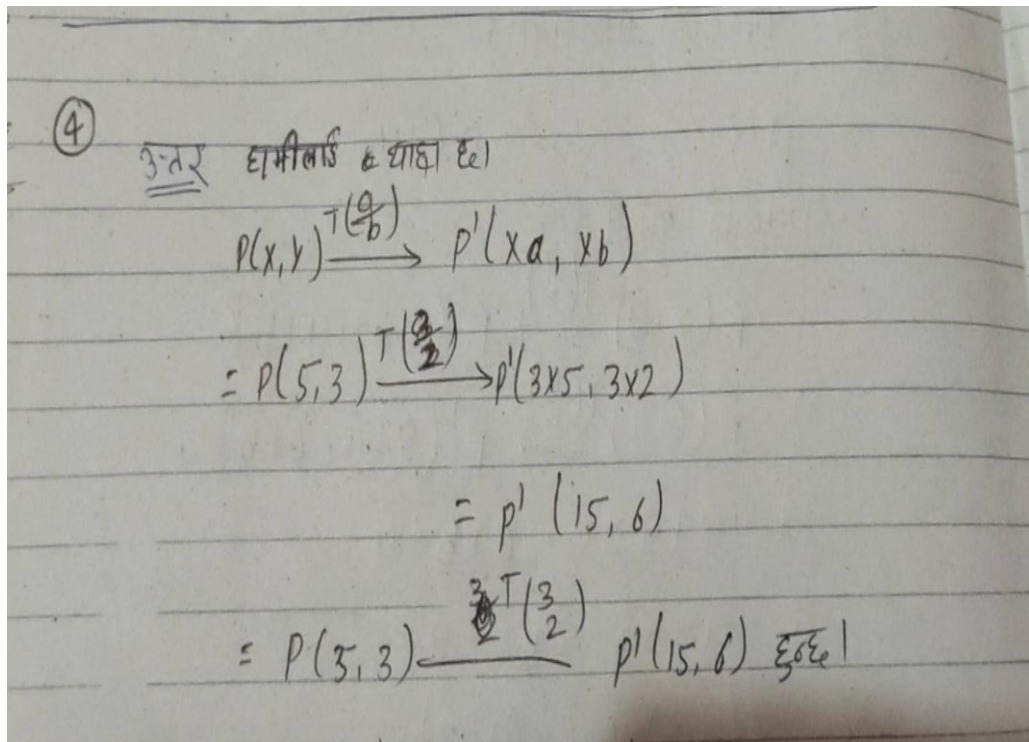 ④
उत्तर हामीलाई थाहा छ।
P(x,y) T(a/b) → P'(xa, xb)
= P(5,3) T(3/2) → P'(3x5, 3x2)
= p' (15, 6)
= P(5,3) T(3/2) p'(15,6) हुन्छ।